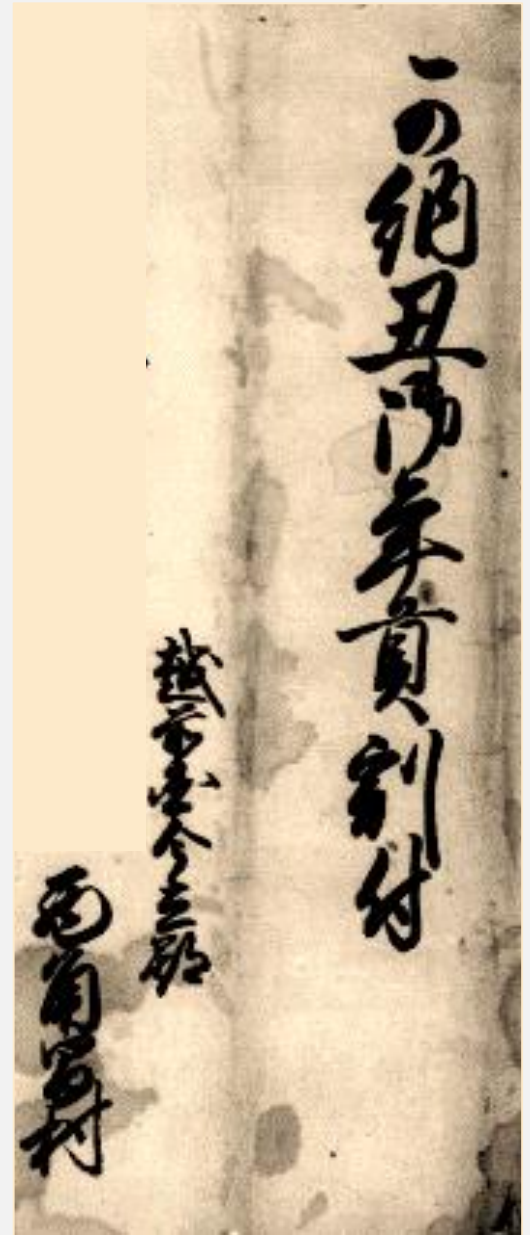 可納丑御年貢割付
越前国今立郡
西角間村